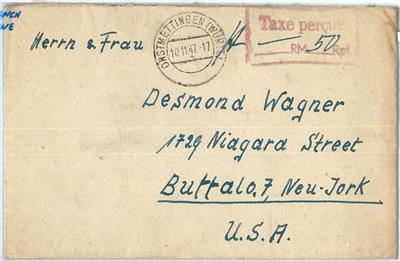 Herrn & Frau
ONSTMETTINGEN (WÜRTT)
10.11.47.-17
Taxe perçue
RM 50 Rpf
Desmond Wagner
1729 Niagara Street
Buffalo, 7, Neu-York
U.S.A.